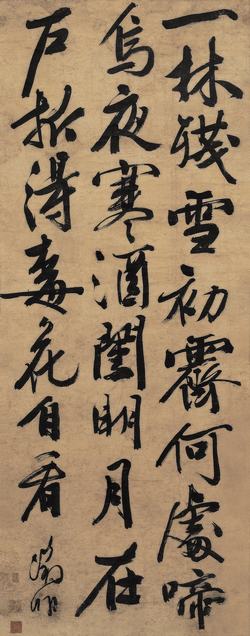 一林殘雪初霽何處啼
烏夜寒酒闌明月在
戶折得妻花自看